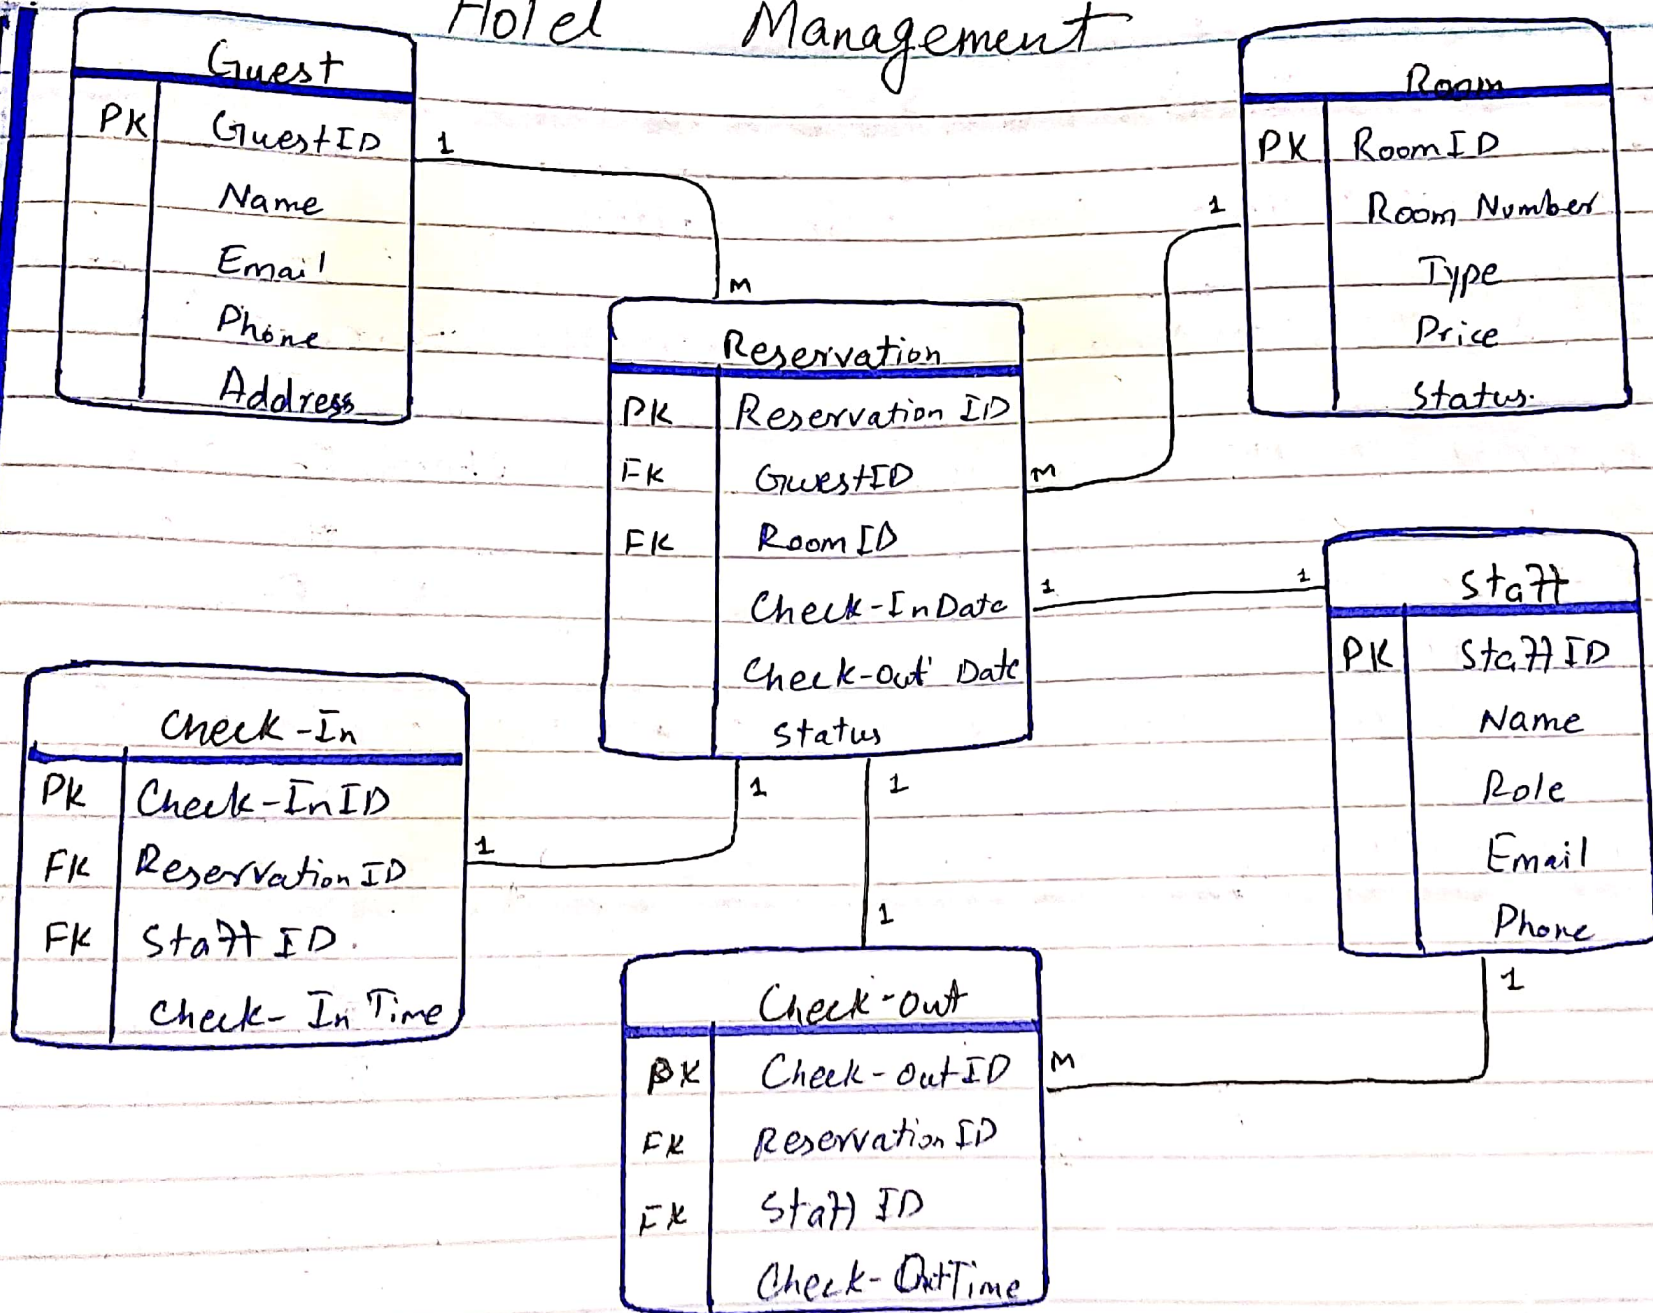 Hotel Management
Guest
PK GuestID
Name
Email
Phone
Address
1
M
Room
PK RoomID
Room Number
Type
Price
Status.
1
M
Reservation
PK Reservation ID
FK GuestID
FK Room ID
Check-In Date
Check-out Date
Status
1
1
Staff
PK Staff ID
Name
Role
Email
Phone
1
M
Check-In
PK Check-In ID
FK Reservation ID
FK Staff ID.
Check-In Time
1
1
1
1
Check-out
PK Check-out ID
FK Reservation ID
FK Staff ID
Check-Out Time